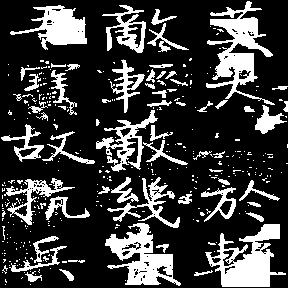 莫大於輕
敵輕敵幾喪
吾寶故抗兵